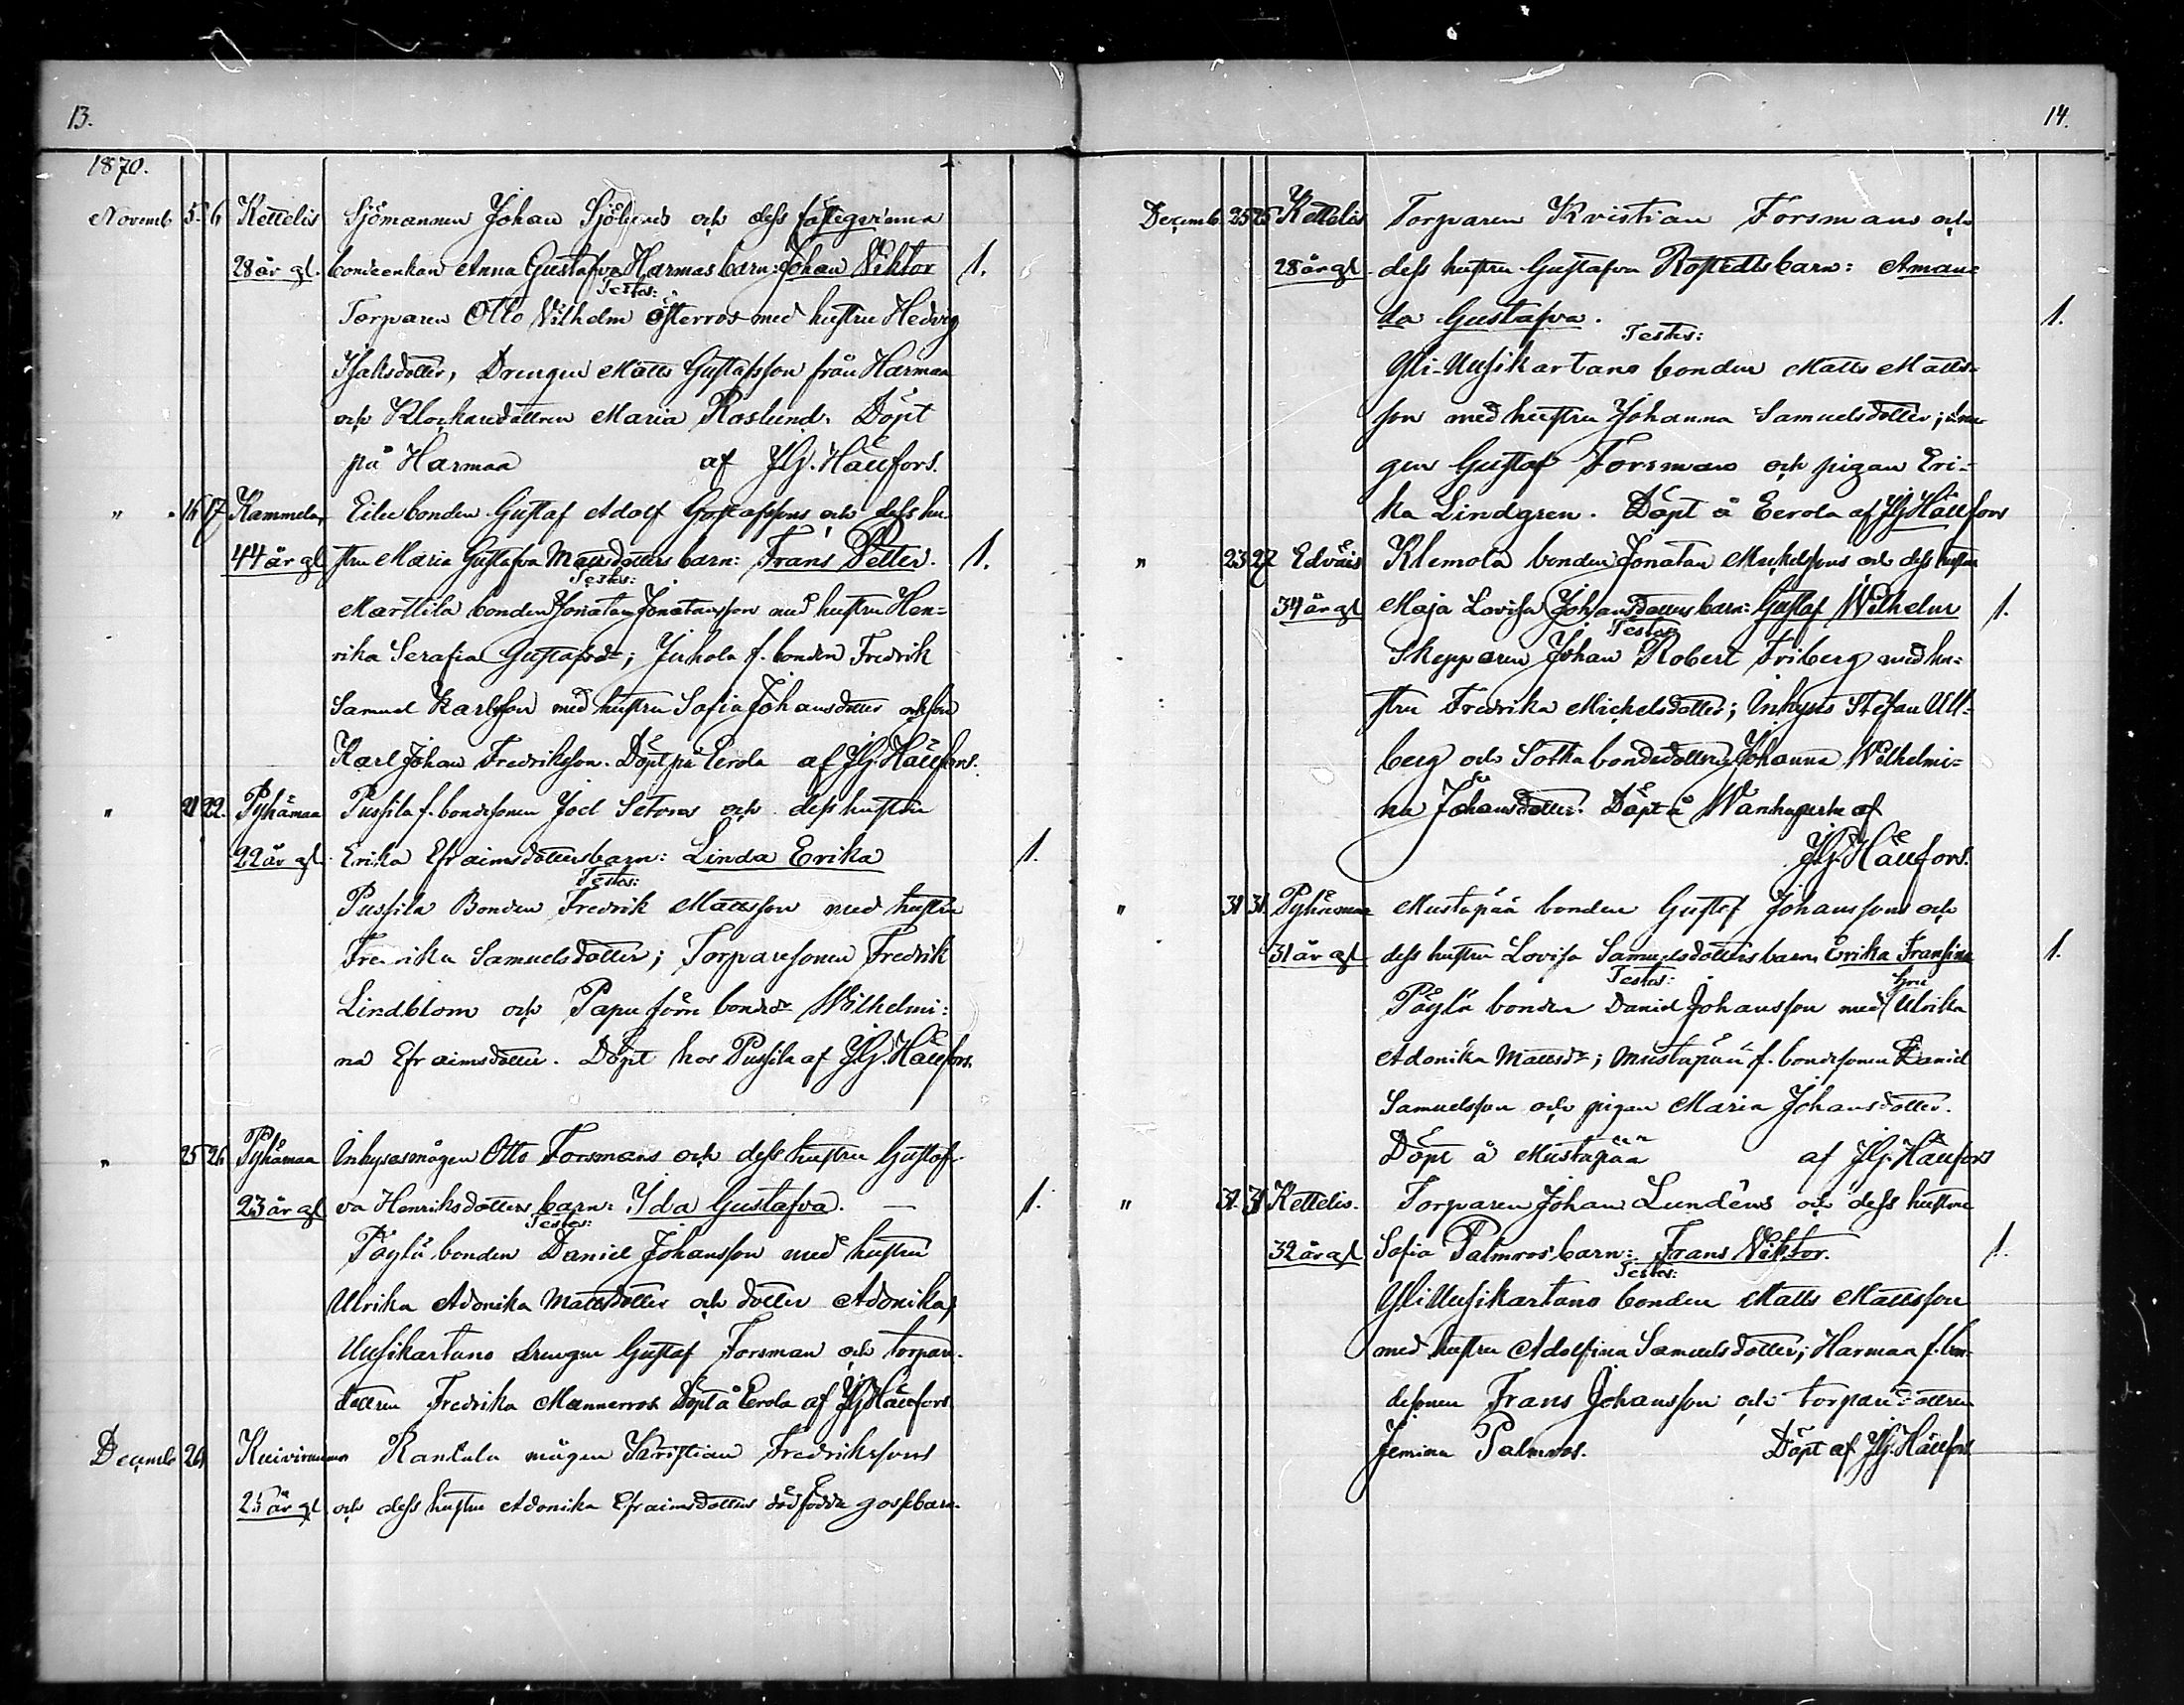 13.
1870.
Novemb 5 6 Kettelis Sjömannen Johan Sjölunds och dess fästeqvinna
28 år gl. bondeenkan Anna Gustafva Harmas barn: Johan Viktor 1.
Testes:
Torparen Otto Vilhelm Österros med hustru Hedvig
Isaksdotter, Drengen Matts Gustafsson från Harmaa
och Klockaredottren Maria Roslund. Döpt
på Harmaa af JG. Hällfors.
" 16 17 Kammela, Eile bonden Gustaf Adolf Gustafssons och dess hu-
44 år gl stru Maria Gustafva Mattsdotters barn: Frans Petter. 1.
Testes:
Marttila bonden Jonatan Jonatansson med hustru Hen=
rika Serafia Gustafsdr; Juhola f. bonden Fredrik
Samuel Karlsson med hustru Sofia Johansdotter och son
Karl Johan Fredriksson. Döpt på Eerola af JG. Hällfors.
" 21 22. Pyhämaa Pussila f. bondesonen Joel Setoras och dess hustru
22 år gl. Erika Efraimsdotters barn: Linda Erika 1.
Testes:
Pussila Bonden Fredrik Mattsson med hustru
Fredrika Samuelsdotter; Torparesonen Fredrik
Lindblom och Papu förre bondedr Wilhelmi=
na Efraimsdotter. Döpt hos Pussila af JG. Hällfors.
" 25 26 Pyhämaa Inhysesmågen Otto Forsmans och dess hustru Gustaf-
23 år gl va Henriksdotters barn: Ida Gustafva. — 1.
Testes:
Pöylä bonden Daniel Johansson med hustru
Ulrika Adonika Mattsdotter och dotter Adonika,
Uusikartano drengen Gustaf Forsman och torpare-
dottren Fredrika Mannerros. Döpt å Eerola af JG Hällfors
Decemb 24 Kuivirauma Rantala mågen Kristian Fredrikssons
25 år gl och dess hustru Adonika Efraimsdotters dödfödda gossebarn.
14.
Decemb. 25 25 Kettelis Torparen Kristian Forsmans och
28 år gl. dess hustru Gustafva Rostedts barn: Aman=
da Gustafva. 1.
Testes:
Yli-Uusikartano bonden Matts Matts-
son med hustru Johanna Samuelsdotter; dren
gen Gustaf Forsman och pigan Eri=
ka Lindgren. Döpt å Eerola af JG Hällfors
" 23 27 Edväis Klemola bonden Jonatan Mickelssons och dess hustru
34 år gl Maja Lovisa Johansdotters barn: Gustaf Wilhelm 1.
Testes:
Skepparen Johan Robert Friberg med hu=
stru Fredrika Michelsdotter; Inhyses Stefan Ull=
berg och Sotka bondedottren Johanna Wilhelmi=
na Johansdotter. Döpt å af
JG. Hällfors.
" 31 31 Pyhämaa Mustapää bonden Gustaf Johanssons och
31 år gl dess hustru Lovisa Samuelsdotters barn Erika Fransina 1.
Testes:
Pöylä bonden Daniel Johansson med hru Ulrika
Adonika Mattsdr; Mustapää f. bondesonen Daniel
Samuelsson och pigan Maria Johansdotter.
Döpt å Mustapää af JG. Hällfors
" 31 31 Kettelis. Torparen Johan Lundéns och dess hustru
32 år gl Sofia Palmros' barn: Frans Viktor. 1.
Testes:
Yli Uusikartano bonden Matts Mattsson
med hustru Adolfina Samuelsdotter; Harmaa f. bon-
desonen Frans Johansson och torparedottren
Jemina Palmros. Döpt af JG. Hällfors.